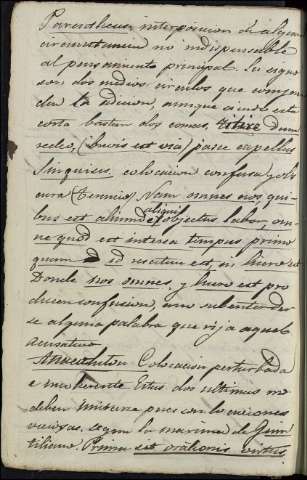 Parenthesis, interposicion de alguna
circunstancia no indispensable
al pensamiento principal. Su signo
son dos medios circulos que compren
den la diccion, aunque siendo esta
corta bastan dos comas, Titire dum
redeo, (brevis est via) pasce capellas
Sinquisis, colocacion confusa y obs
cura (Tennio) Nam omnes eos qui
bus est alicunde aliquis objectus labor, om
ne quod est interea tempus prius
quam id rescitum est, in lucro est
Donde nos omnes, y lucro est pro
ducen confusion, amo subentender
se alguna palabra que rija aquel
acusativo
Anacoluton Colocacion perturbada
e incoherente. Estos dos ultimos no
deben imitarse pues son locuciones
viciosas, segun la maxima de Quin
tiliano. Prima est orationis virtus